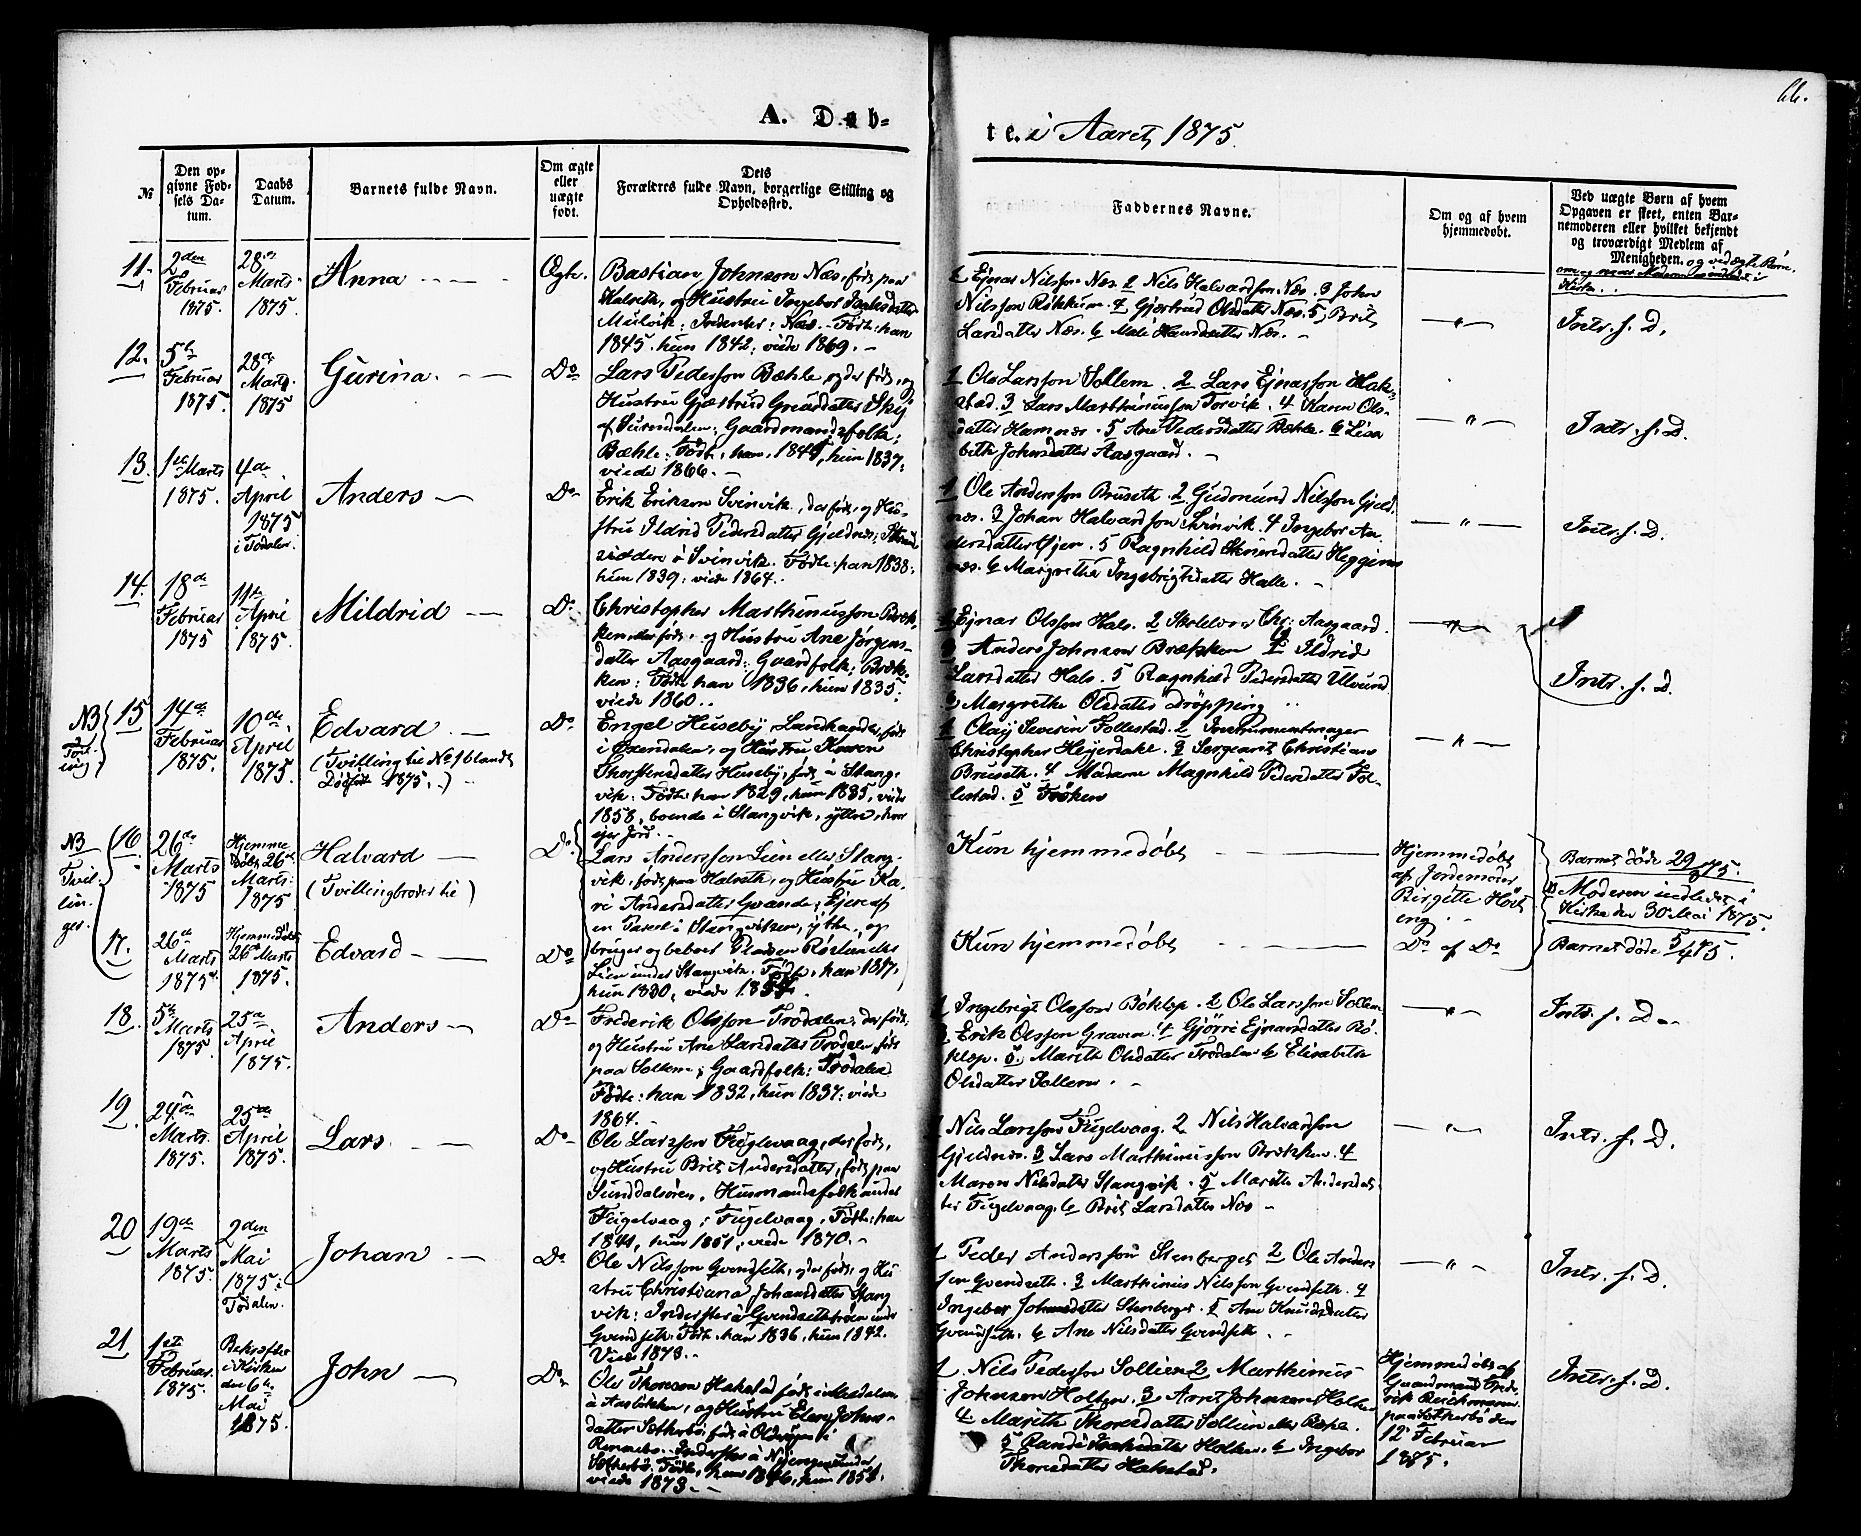 66.
A. Døb-
te. i Aaret 1875.
№
Den op-
givne Fød-
sels Da-
tum.
Daabs
Datum.
Barnets fulde Navn.
Om ægte
eller
uægte
født.
Dets
Forældres fulde Navn, borgerlige Stilling og
Opholdssted.
Faddernes Navne.
Om og af hvem
hjemmedøbt.
Ved uægte Børn af hvem
Opgaven er skeet, enten Bar-
nemoderen eller hvilket bekjendt
og troværdigt Medlem af
Menigheden. og ved ægte Børn
11.
2den
Februar
1875.
28de
Marts
1875.
Anna
Ægte.
Bastian Johnson Næs, født paa
Halseth, og Hustru Ingebor
Mulvik: Inderster: Næs. Født: han
1845. hun 1842: viede 1869.
1 Ejnar Nilsson Næs. 2 Nils Halvardson Næs. 3 John
Nilsson Røkkum. 4 Gjertrud Olsdatter Næs. 5 Brit
Larsdatter Næs. 6 Mali Hansdatter Næs.
— " —
Intr. s. D.
12.
5te
Februar
1875.
28de
Marts
1875
Gurina.
Do
Lars Pederson Bæhle, og der født, og
Hustru Gjertrud
af Surendalen: Gaardmandsfolk:
Bæhle: Født: han 1845, hun 1837:
viede 1866.
1 Ole Larsson Sollem. 2 Lars Ejnarsson Hak-
stad. 3 Lars Marthinusson Torvik. 4 Karen Ols-
datter Hamnæs. 5 Ane Pedersdatter Bæhle. 6 Lisa-
beth Johnsdatter Aasgaard.
— " —
Intr. s. D.
13.
1ste Marts
1875.
4de
April
1875
i Tødalen.
Anders
Do
Erik Erikson Svinvik, der født, og Hu-
stru Ildrid Pedersdatter Gjeldnes:
i Svinvik. Født: han 1838:
hun 1839: viede 1864.
1 Ole Andersson Bruseth. 2 Gudmund Nilsson Gjeld-
næs. 3 Johan Halvardson Svinvik. 4 Ingebor An-
dersdatter Øjen. 5 Ragnhild
næs. 6 Margrethe Ingebrigtsdatter Halle.
— " —
Intr. s. D.
14.
18de
Februar
1875
11te
April
1875.
Mildrid
Do
Christopher Marthinusson Bræk-
ken, der født, og Hustru Ane Jørgens-
datter Aasgaard: Gaardfolk: Bræk-
ken: Født han 1836, hun 1835:
viede 1860.
1 Ejnar Olsson Hals. 2 Skolelærer Chr: Aasgaard.
3 Anders Johnson Brækken 4 Ildrid
Larsdatter Hals. 5 Ragnhild Pedersdatter Ulvund
6 Margrethe Olsdatter Drøpping
— " —
Intr. s. D.
NB
15
14de
Februar
1875.
10de
April
1875.
Edvard.
(Tvilling til No. 1 blandt
1875.)
Do
Engel Huseby, Landhandler, født
i Øxendalen, og Hustru Karen
Thorstensdatter Huseby, født i Stang-
vik: Født: han 1829, hun 1835, viede
1858, boende i Stangvik, ytter, hvor
ejer Jord.
1 Olaf Severin Follestad. 2 Instrumentmager
Christopher Heyerdahl. 3 Sergeant Christian
Bruseth. 4 Madame Magnhild Pedersdatter Fol-
lestad. 5 Frøken
— " —
NB
Tvil-
lin-
ger.
16.
26de
Marts
1875
Hjemme
døbt 26de
Marts
1875
Halvard
(Tvillingbroder til)
Do
Lars Andersson Lien eller Stang-
vik, født paa Halseth, og Hustru Ka-
ri Andersdatter Qvande: Ejere af
en Parcel i Stangvikøen, ytre, og
bruger og bebor Pladsen Røslien eller
Lien under Stangvik. Født: han 1817,
hun 1830, viede 1854.
Kun hjemmedøbt
Hjemmedøbt
af Jordemoder
Birgitte Høst
eng.
Barnet døde 29/3 75.
Moderen indledet i
Kirke den 30 Mai 1875.
17.
26de
Marts
1875.
Hjemmedøbt
26de Marts
1875.
Edvard
Do
Kun hjemmedøbt
Do af Do
Barnet døde 5/4 75.
18.
5te
Marts
1875.
25de
April
1875.
Anders
Do
Frederik Olsson Trødalen: der født,
og Hustru Ane Larsdatter Trødalen, født
paa Sollem: Gaardfolk: Trødalen
Født: han 1832, hun 1837: viede
1864.
1 Ingebrigt Olsson Bøklep. 2 Ole Larsson Sollem
3 Erik Olsson Graven. 4 Gjørri Ejnarsdatter Bø-
klep. 5. Marith Olsdatter Trødalen 6 Elisabeth
Olsdatter Sollem.
— " —
Intr. s. D.
19.
24de
Marts.
1875.
25de
April
1875.
Lars.
Do
Ole Larsson Fuglevaag, der født,
og Hustru Brit Andersdatter, født paa
Sunddalsøren, Husmandsfolk under
Fuglevaag; Fuglevaag. Født: han
1841, hun 1851: viede 1870.
1 Nils Larsson Fuglevaag. 2 Nils Halvardson
Gjeldnes. 3 Lars Marthinusson Brækken. 4
Maren Nilsdatter Stangvik. 5 Marith Andersdat-
ter Fuglevaag. 6 Brit Larsdatter Næs
— " —
Intr. s. D.
20
19de
Marts
1875.
2den
Mai
1875:
Tødalen.
Johan
Do
Ole Nilsson Qvendseth, og der født, og Hu-
stru Christiana Johansdatter Stang
vik: under
Qvendseth. Født: han 1836, hun 1842.
Viede 1873.
1 Peder Andersson Stenberget 2 Ole Anders
son Qvendseth. 3 Marthinus Nilsson Qvendseth. 4
Ingebor Johnsdatter Stenberget. 5 Ane Knudsdatter
Qvendseth. 6 Ane Nilsdatter Qvendseth.
— " —
Intr. s. D.
21
1ste
Februar
1875.
Bekræftet
i Kirken
den 6te
Mai
1875.
John
Do
Ole Thoreson Hakstad født i
og Hustru Elen Johns-
datter Sætherbø, født
under
Sætherbø. Født: han 1846, hun 1851.
viede 1873.
1 Nils Pederson Sollien 2 Marthinus
Johnson Holten. 3 Arnt Johnson Holten
4 Marith Thoresdatter Sollien
6 Ingebor
Thoresdatter Hakstad.
Hjemmedøbt af
Gaardmand Fred-
rik Reichmann
paa Sætherbø den
12 Februar
1875.
Intr. s. D.